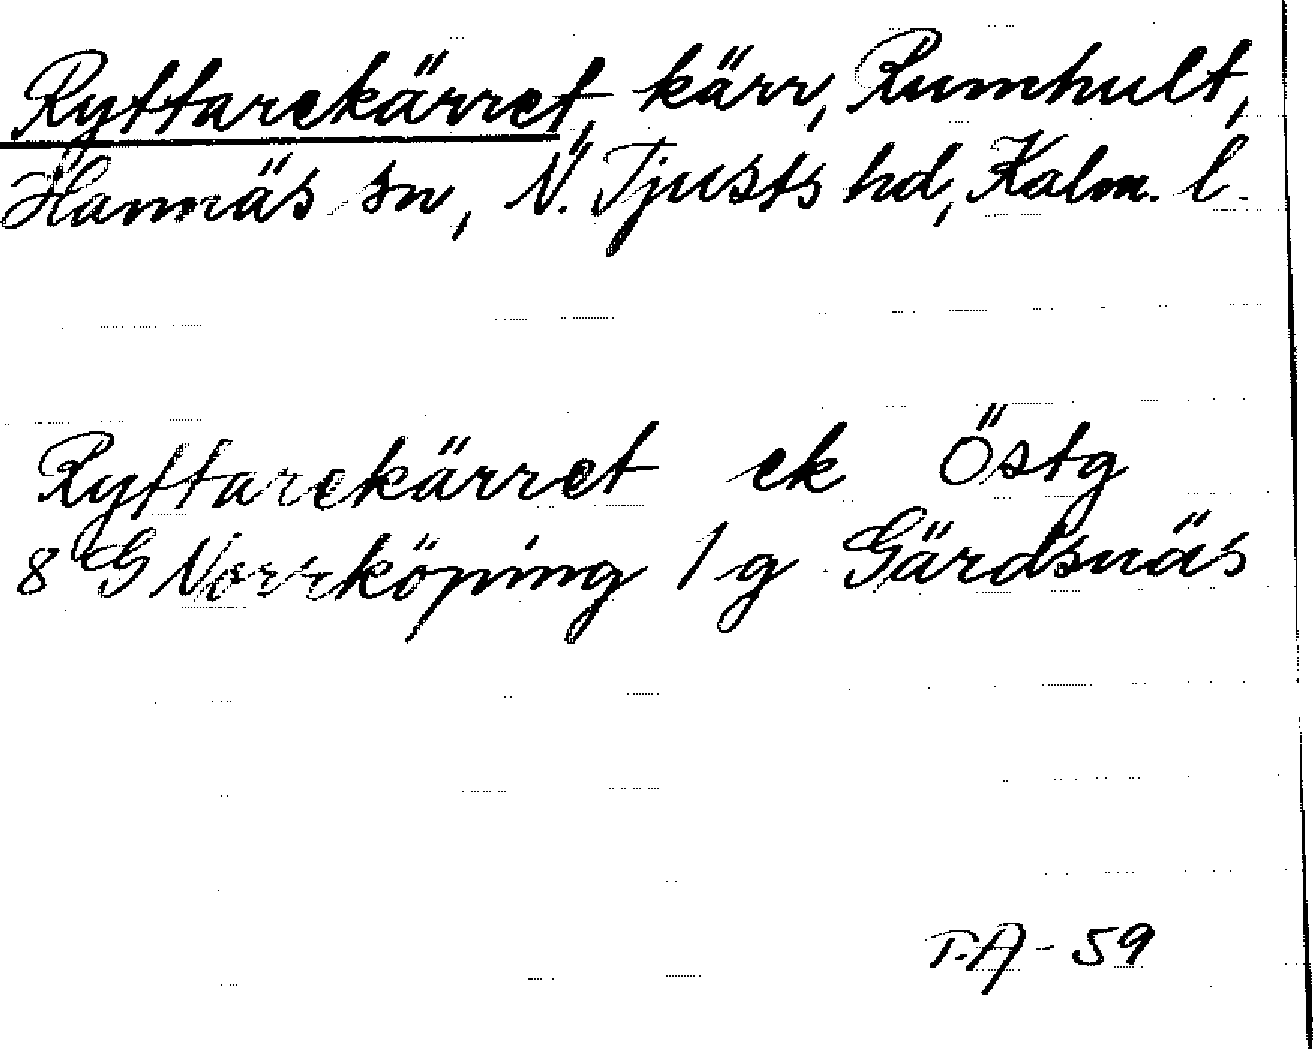 Ryttarekärret, kärr, Rumhult,
Hannäs sn, N. Tjusts hd, Kalm. l.
Ryttarekärret ek Östg
8 G Norrköping 1 g Gärdsnäs
T.A - 59